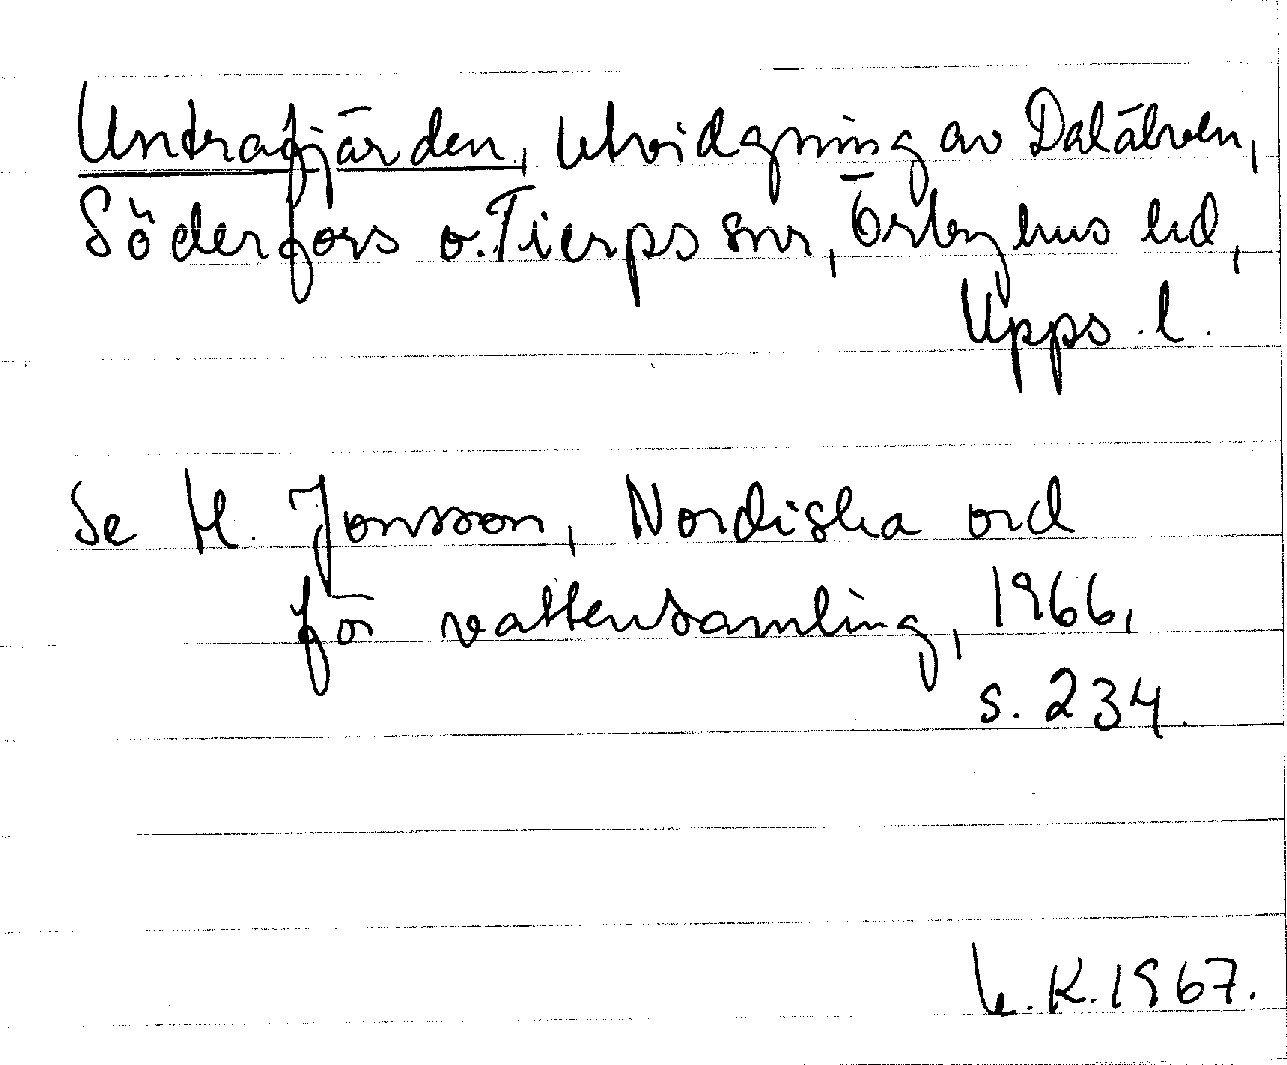 Untrafjärden, utvidgning av Dalälven,
Söderfors o. Tierps snr, Örbyhus hd,
Upps. l.
Se H. Jonsson, Nordiska ord
för vattensamling, 1966,
s. 234.
K. 1967.